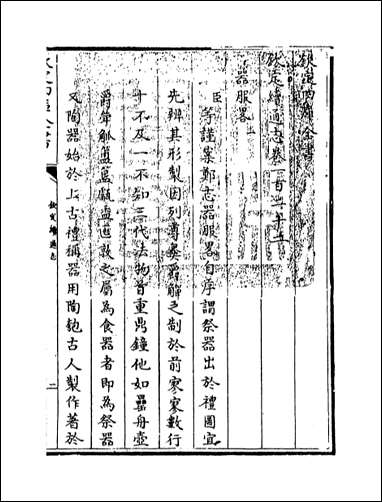 欽定四庫全書
欽定續通志卷一百二十二
器服畧
臣等謹案鄭志器服畧自序謂祭器出於禮圖宜
先辨其形製因列尊彝爵觶之制於前寥寥數行
十不及一不知三代法物首重鼎鐘他如罍舟壺
爵斝觚簠簋甗盉匜敦之屬為食器者即為祭器
又陶器始於上古禮稱器用陶匏古人製作著於
欽定續通志